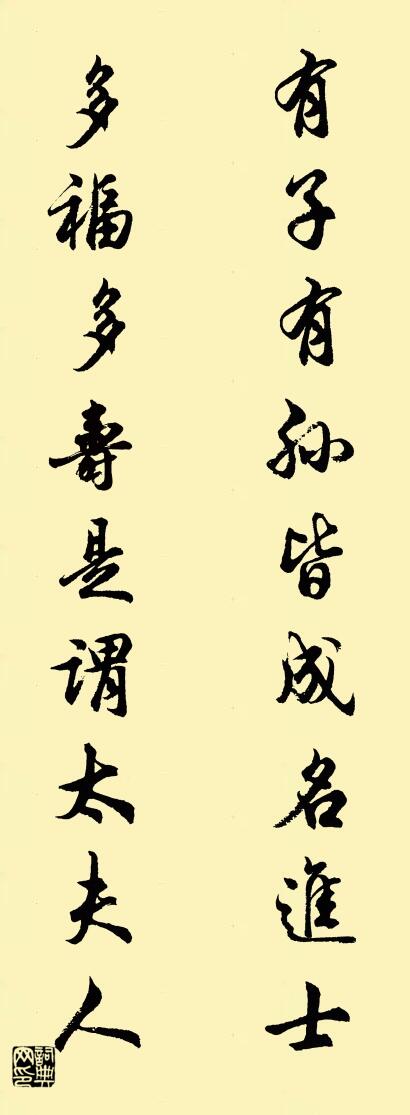 有子有孙皆成名進士
多福多壽是謂太夫人
詞典网印